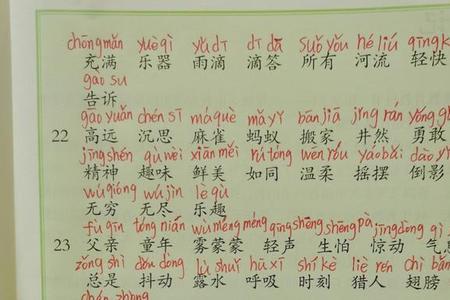 chōngmǎn yuèqì yǔdī dī dā suǒ yǒu hé liú qīng k
充满 乐器 雨滴 滴答 所有 河流 轻快
gào su
告诉
gāo yuǎn chén sī má què mǎ yǐ bān jiā jǐng rán yǒng g
22 高远 沉思 麻雀 蚂蚁 搬家 井然 勇敢
jīng shén qù wèi xiān měi rú tóng wēn róu yáo bǎi dào yǐ
精神 趣味 鲜美 如同 温柔 摇摆 倒影
wú qióng wú jìn lè qù
无穷 无尽 乐趣
fù qīn tóng nián wù méng méng qīng shēng shēng pà jīng dòng qì
23 父亲 童年 雾蒙蒙 轻声 生怕 惊动 气
zǒng shì dǒu dòng lù shuǐ hū xī shí kè liè rén chì bǎn
总是 抖动 露水 呼吸 时刻 猎人 翅膀